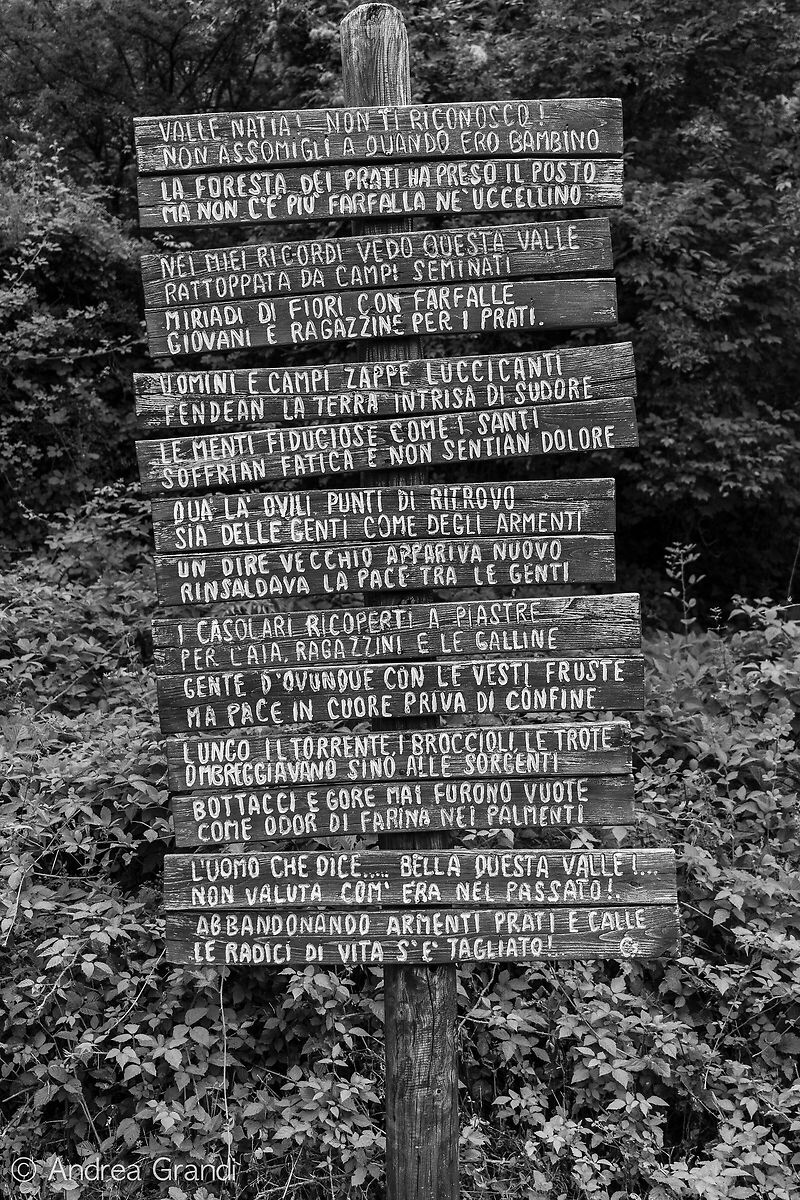 VALLE NATIA! NON TI RICONOSCO!
NON ASSOMIGLI A QUANDO ERO BAMBINO
LA FORESTA DEI PRATI HA PRESO IL POSTO
MA NON C'È PIÙ FARFALLA NE UCCELLINO
NEI MIEI RICORDI VEDO QUESTA VALLE
RATTOPPATA DA CAMPI SEMINATI
MIRIADI DI FIORI CON FARFALLE
GIOVANI E RAGAZZINE PER I PRATI.
UOMINI E CAMPI ZAPPE LUCCICANTI
FENDEAN LA TERRA INTRISA DI SUDORE
LE MENTI FIDUCIOSE COME I SANTI
SOFFRIAN FATICA E NON SENTIAN DOLORE
QUA LA' OVILI PUNTI DI RITROVO
SIA DELLE GENTI COME DEGLI ARMENTI
UN DIRE VECCHIO APPARIVA NUOVO
RINSALDAVA LA PACE TRA LE GENTI
I CASOLARI RICOPERTI A PIASTRE
PER L'AIA, RAGAZZINI E LE GALLINE
GENTE D'OVUNQUE CON LE VESTI FRUSTE
MA PACE IN CUORE PRIVA DI CONFINE.
LUNGO IL TORRENTE, I BROCCIOLI, LE TROTE
OMBREGGIAVANO SINO ALLE SORGENTI
BOTTACCI E GORE MAI FURONO VUOTE
COME ODOR DI FARINA NEI PALMENTI
L'UOMO CHE DICE..... BELLA QUESTA VALLE!...
NON VALUTA COM' ERA NEL PASSATO!
ABBANDONANDO ARMENTI PRATI E CALLE
LE RADICI DI VITA S'È TAGLIATO!
© Andrea Grandi